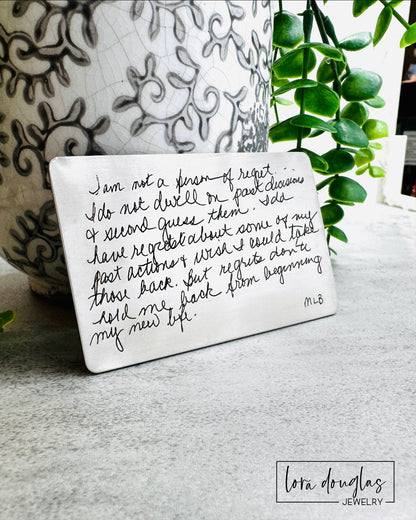 I am not a person of regret.
I do not dwell on past decisions
& second guess them. I do
have regret about some of my
past actions & wish I could take
those back. But regrets don't
hold me back from beginning
my new life.
MLB.
lora douglas
JEWELRY